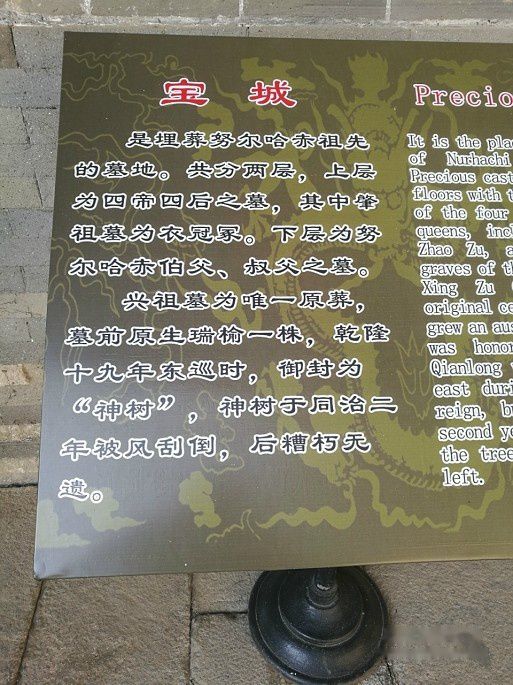 宝城
是埋葬努尔哈赤祖先
的墓地。共分两层，上层
为四帝四后之墓，其中肇
祖墓为衣冠冢。下层为努
尔哈赤伯父、叔父之墓。
兴祖墓为唯一原葬，
墓前原生瑞榆一株，乾隆
十九年东巡时，御封为
“神树”，神树于同治二
年被风刮倒，后糟朽无
遗。
Precio
It is the pla
of Nurhachi
Precious cast
floors with t
of the four
queens, incl
Zhao Zu, a
graves of th
Xing Zu
original ce
grew an aus
was honor
Qianlong
east duri
reign, bu
second ye
the tree
left.